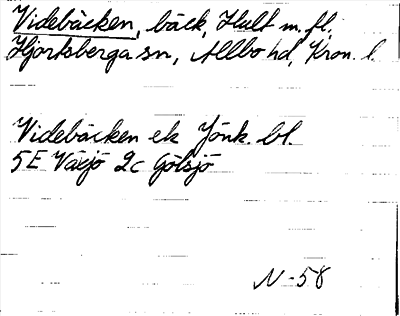 Videbäcken, bäck, Hult m. fl.
Hjortsberga sn, Allbo hd, Kron. l.
Videbäcken ek Jönk. bl.
5E Växjö 2c Götsjö
N-58